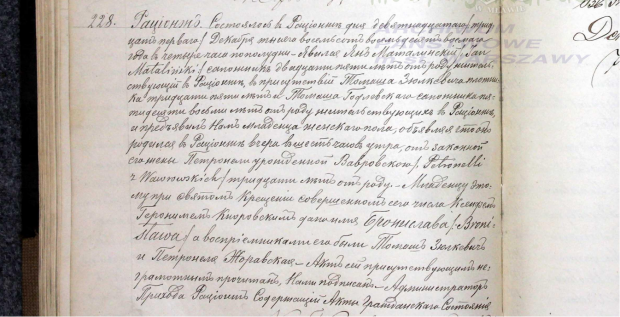 228. Рациёнжъ Состоялось в Рационжѣ дня девятнадцатаго/трид-
цать перваго/Декабря тысяча восемьсотъ восемьдесятъ восьмаго
года в четыре часа пополудни – Явился Янъ Маталинскій/Jan
Mataliński/сапожникъ двадцати пяти лѣтъ отъ роду житель-
ствующій в Рационжѣ, в присутствіи Томаша Зюлковича плотни-
ка тридцати пяти лѣтъ и Томаша сапожника пя-
тидесяти восьми лѣтъ отъ роду, жительствующихъ в Рационжѣ,
и предъявилъ Намъ младенца женскаго пола, объявляя что онъ
родился в Рационжѣ вчера в шесть часовъ утра, отъ законной
его жены Петронели урожденной Вавровской/Petronelli
z Wawrowskich/тридцати лѣтъ отъ роду. – Младенцу это-
му при святомъ Крещеніи совершенномъ сего числа Ксендзомъ
Геронимомъ дано имя Брониславa/Broni-
sława/а воспріемниками его были Томашъ Зюлковичъ
и Петронеля Жоравская – Актъ сей присутствующимъ не-
грамотнымъ прочитанъ, Нами подписанъ – Администраторъ
Прихода Рационжъ Содержащій Акты Гражданскаго Состоянія